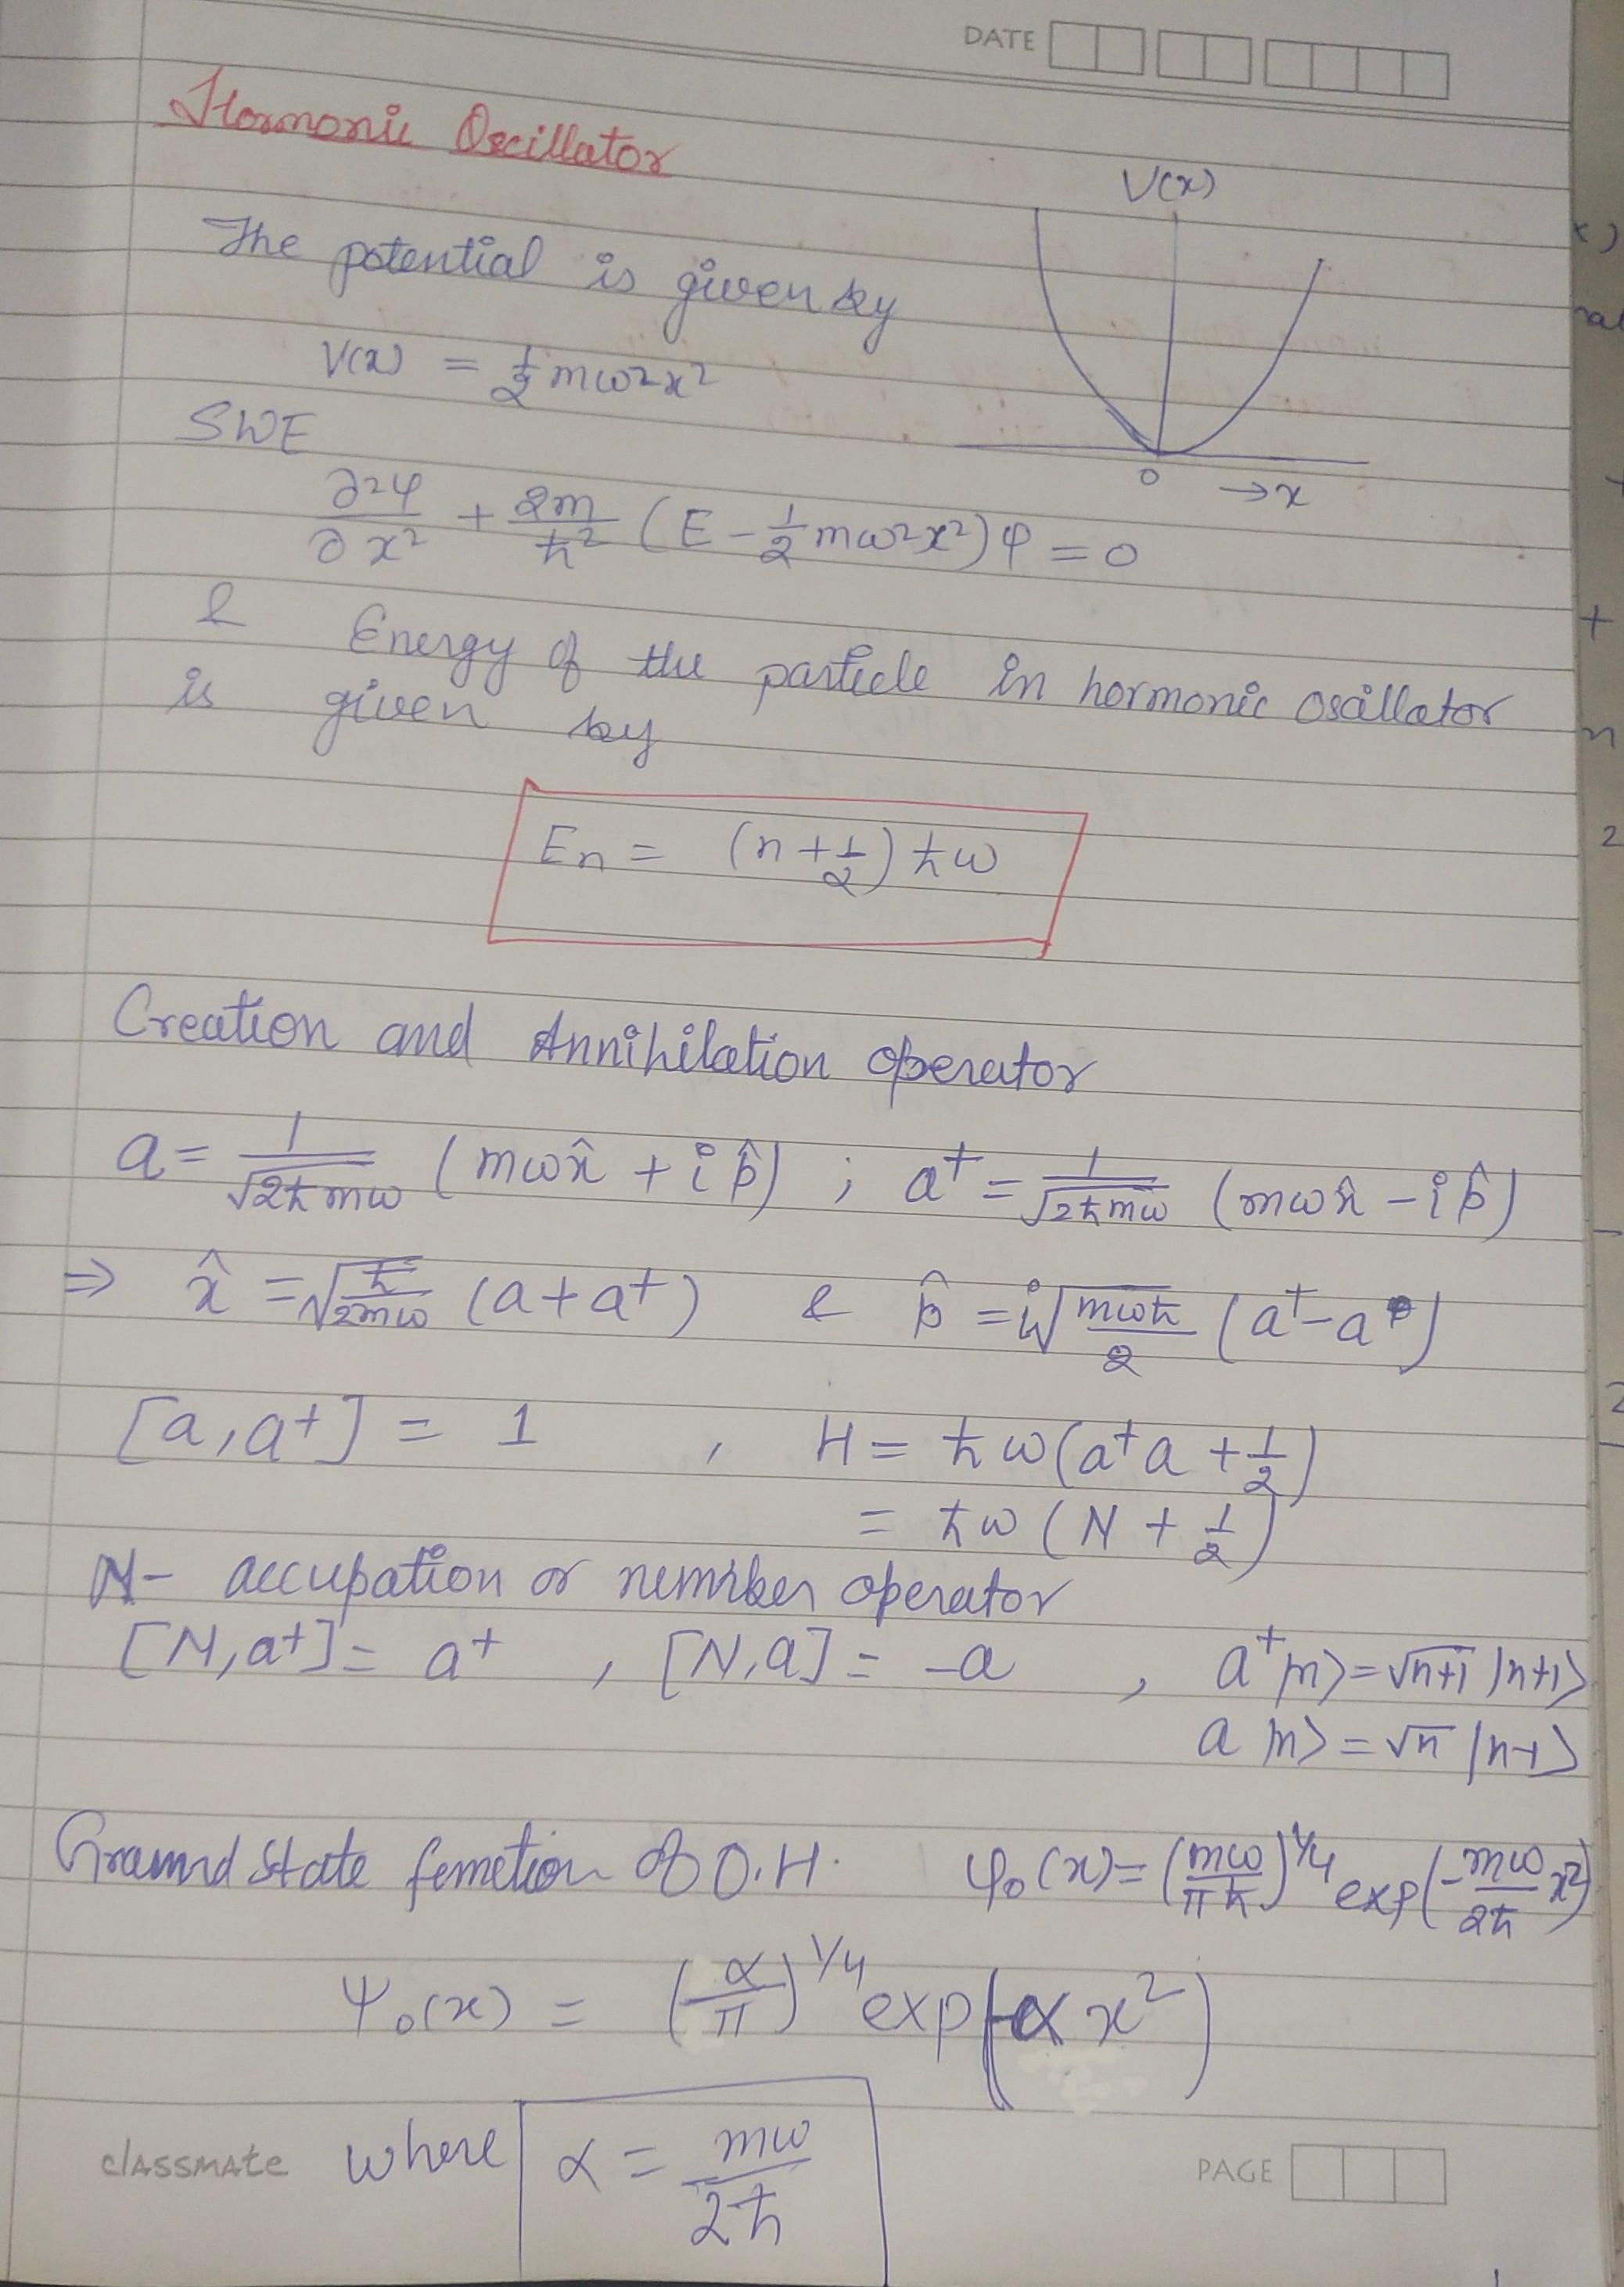 DATE
Hormonic Oscillator
V(x)
The potential is given by
V(x) = 1/2 mω²x²
0 →x
SWE
∂²φ/∂x² + 2m/ħ² (E - 1/2 mω²x²)φ = 0
& Energy of the particle in hormonic oscillator
is given by
En = (n + 1/2) ħω
Creation and Annihilation operator
a = 1/√2ħmω (mωx̂ + i p̂) ; a† = 1/√2ħmω (mωx̂ - i p̂)
⇒ x̂ = √ħ/2mω (a + a†) & p̂ = i√mωħ/2 (a† - a)
[a, a†] = 1 , H = ħω(a†a + 1/2)
= ħω (N + 1/2)
N- accupation or number operator
[N, a†] = a† , [N, a] = -a , a†|n⟩ = √n+1 |n+1⟩
a |n⟩ = √n |n-1⟩
Ground State function of O.H. φ₀(x) = (mω/πħ)^1/4 exp(-mω/2ħ x²)
Ψ₀(x) = (α/π)^1/4 exp(-αx²)
where α = mω/2ħ
classmate
PAGE